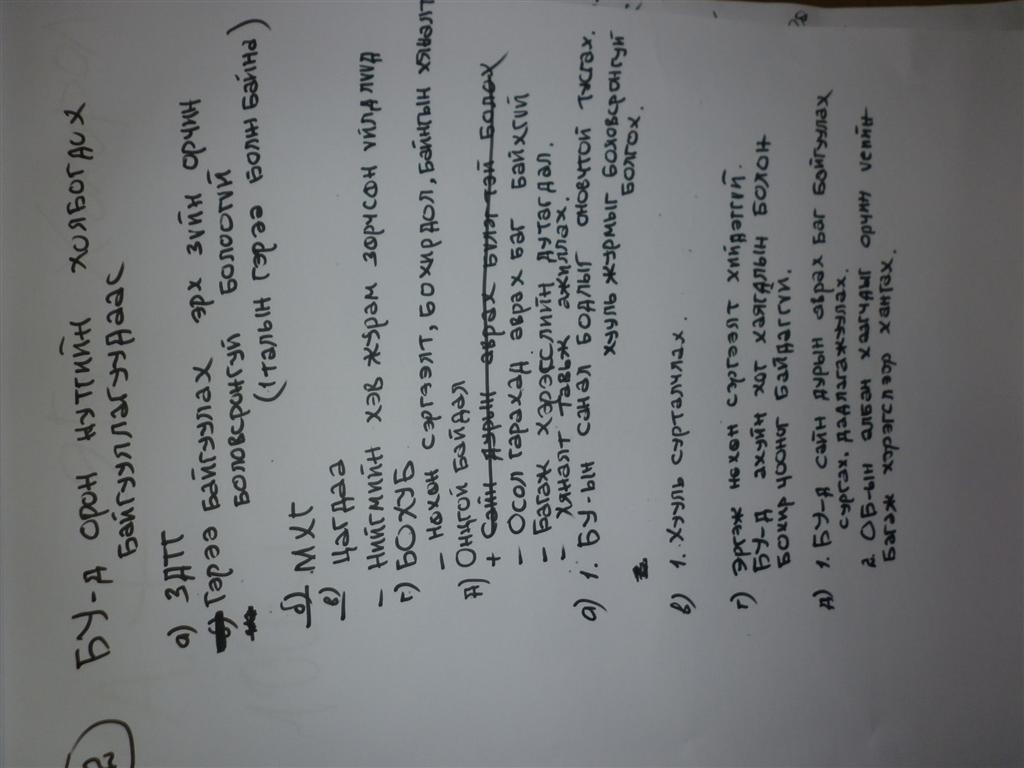 БУ-д орон нутгийн холбогдох
байгууллагуудаас
а) ЗДТГ
Гэрээ байгуулах эрх зүйн орчин
боловсронгуй болоогүй
(1 талын гэрээ болж байна)
б) МХГ
в) Цагдаа
- Нийгмийн хэв журам зөрчсөн үйлдлүүд
г) БОХУБ
- нөхөн сэргээлт, бохирдол, байнгын хяналт
д) Онцгой байдал
+ Сайн дурын аврах бүлэгтэй болох
- Осол гарахад аврах баг байхгүй
- Багаж хэрэгслийн дутагдал.
- Хяналт тавьж ажиллах.
а) 1. БУ-ын санал бодлыг оновчтой тусгах.
хууль журмыг боловсронгуй
болгох.
2.
в) 1. Хууль сурталчлах.
г) эргэж нөхөн сэргээлт хийдэггүй.
БУ-д ахуйн хог хаягдлын болон
бохир цооног байдаггүй.
д) 1. БУ-д сайн дурын аврах баг байгуулах
сургах, дадлагажуулах.
2. ОБ-ын албан хаагчдыг орчин үеийн
багаж хэрэгслээр хангах.